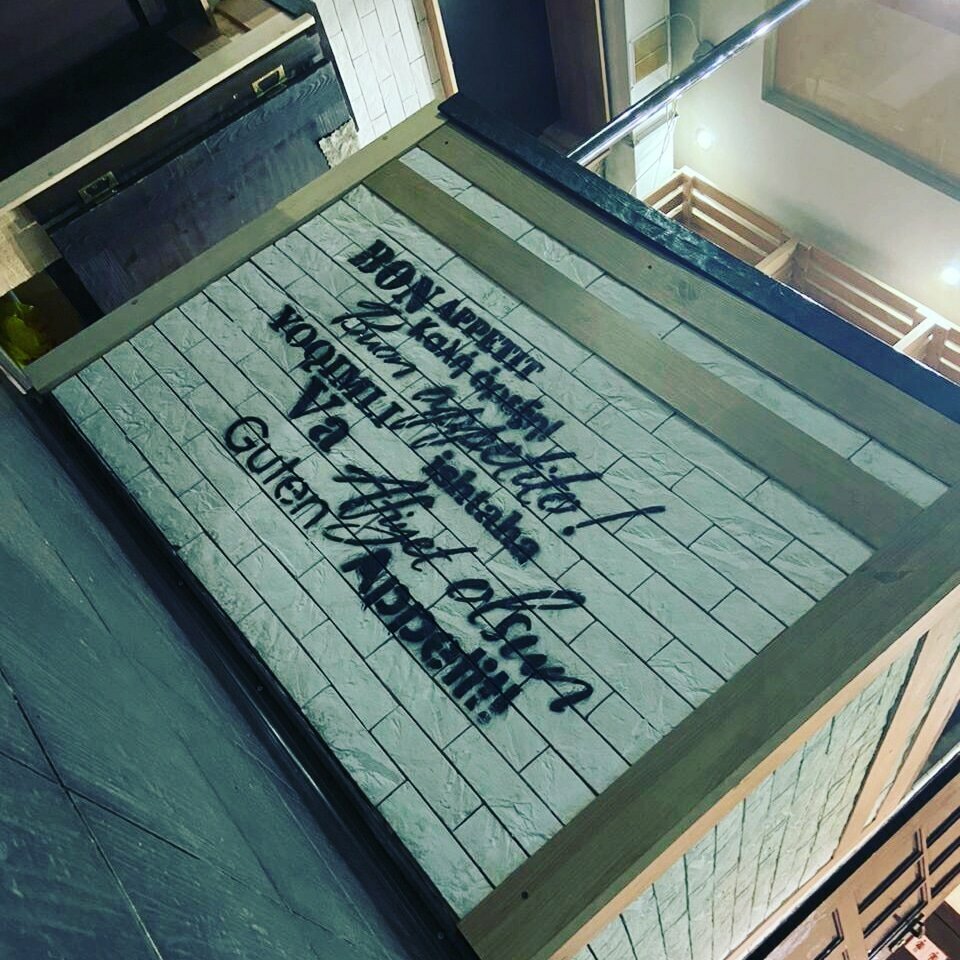 BON APPETIT
Καλή όρεξη!
Buon appetito!
YOQIMLI ishtaha
Va Afiyet olsun
Guten Appetit!